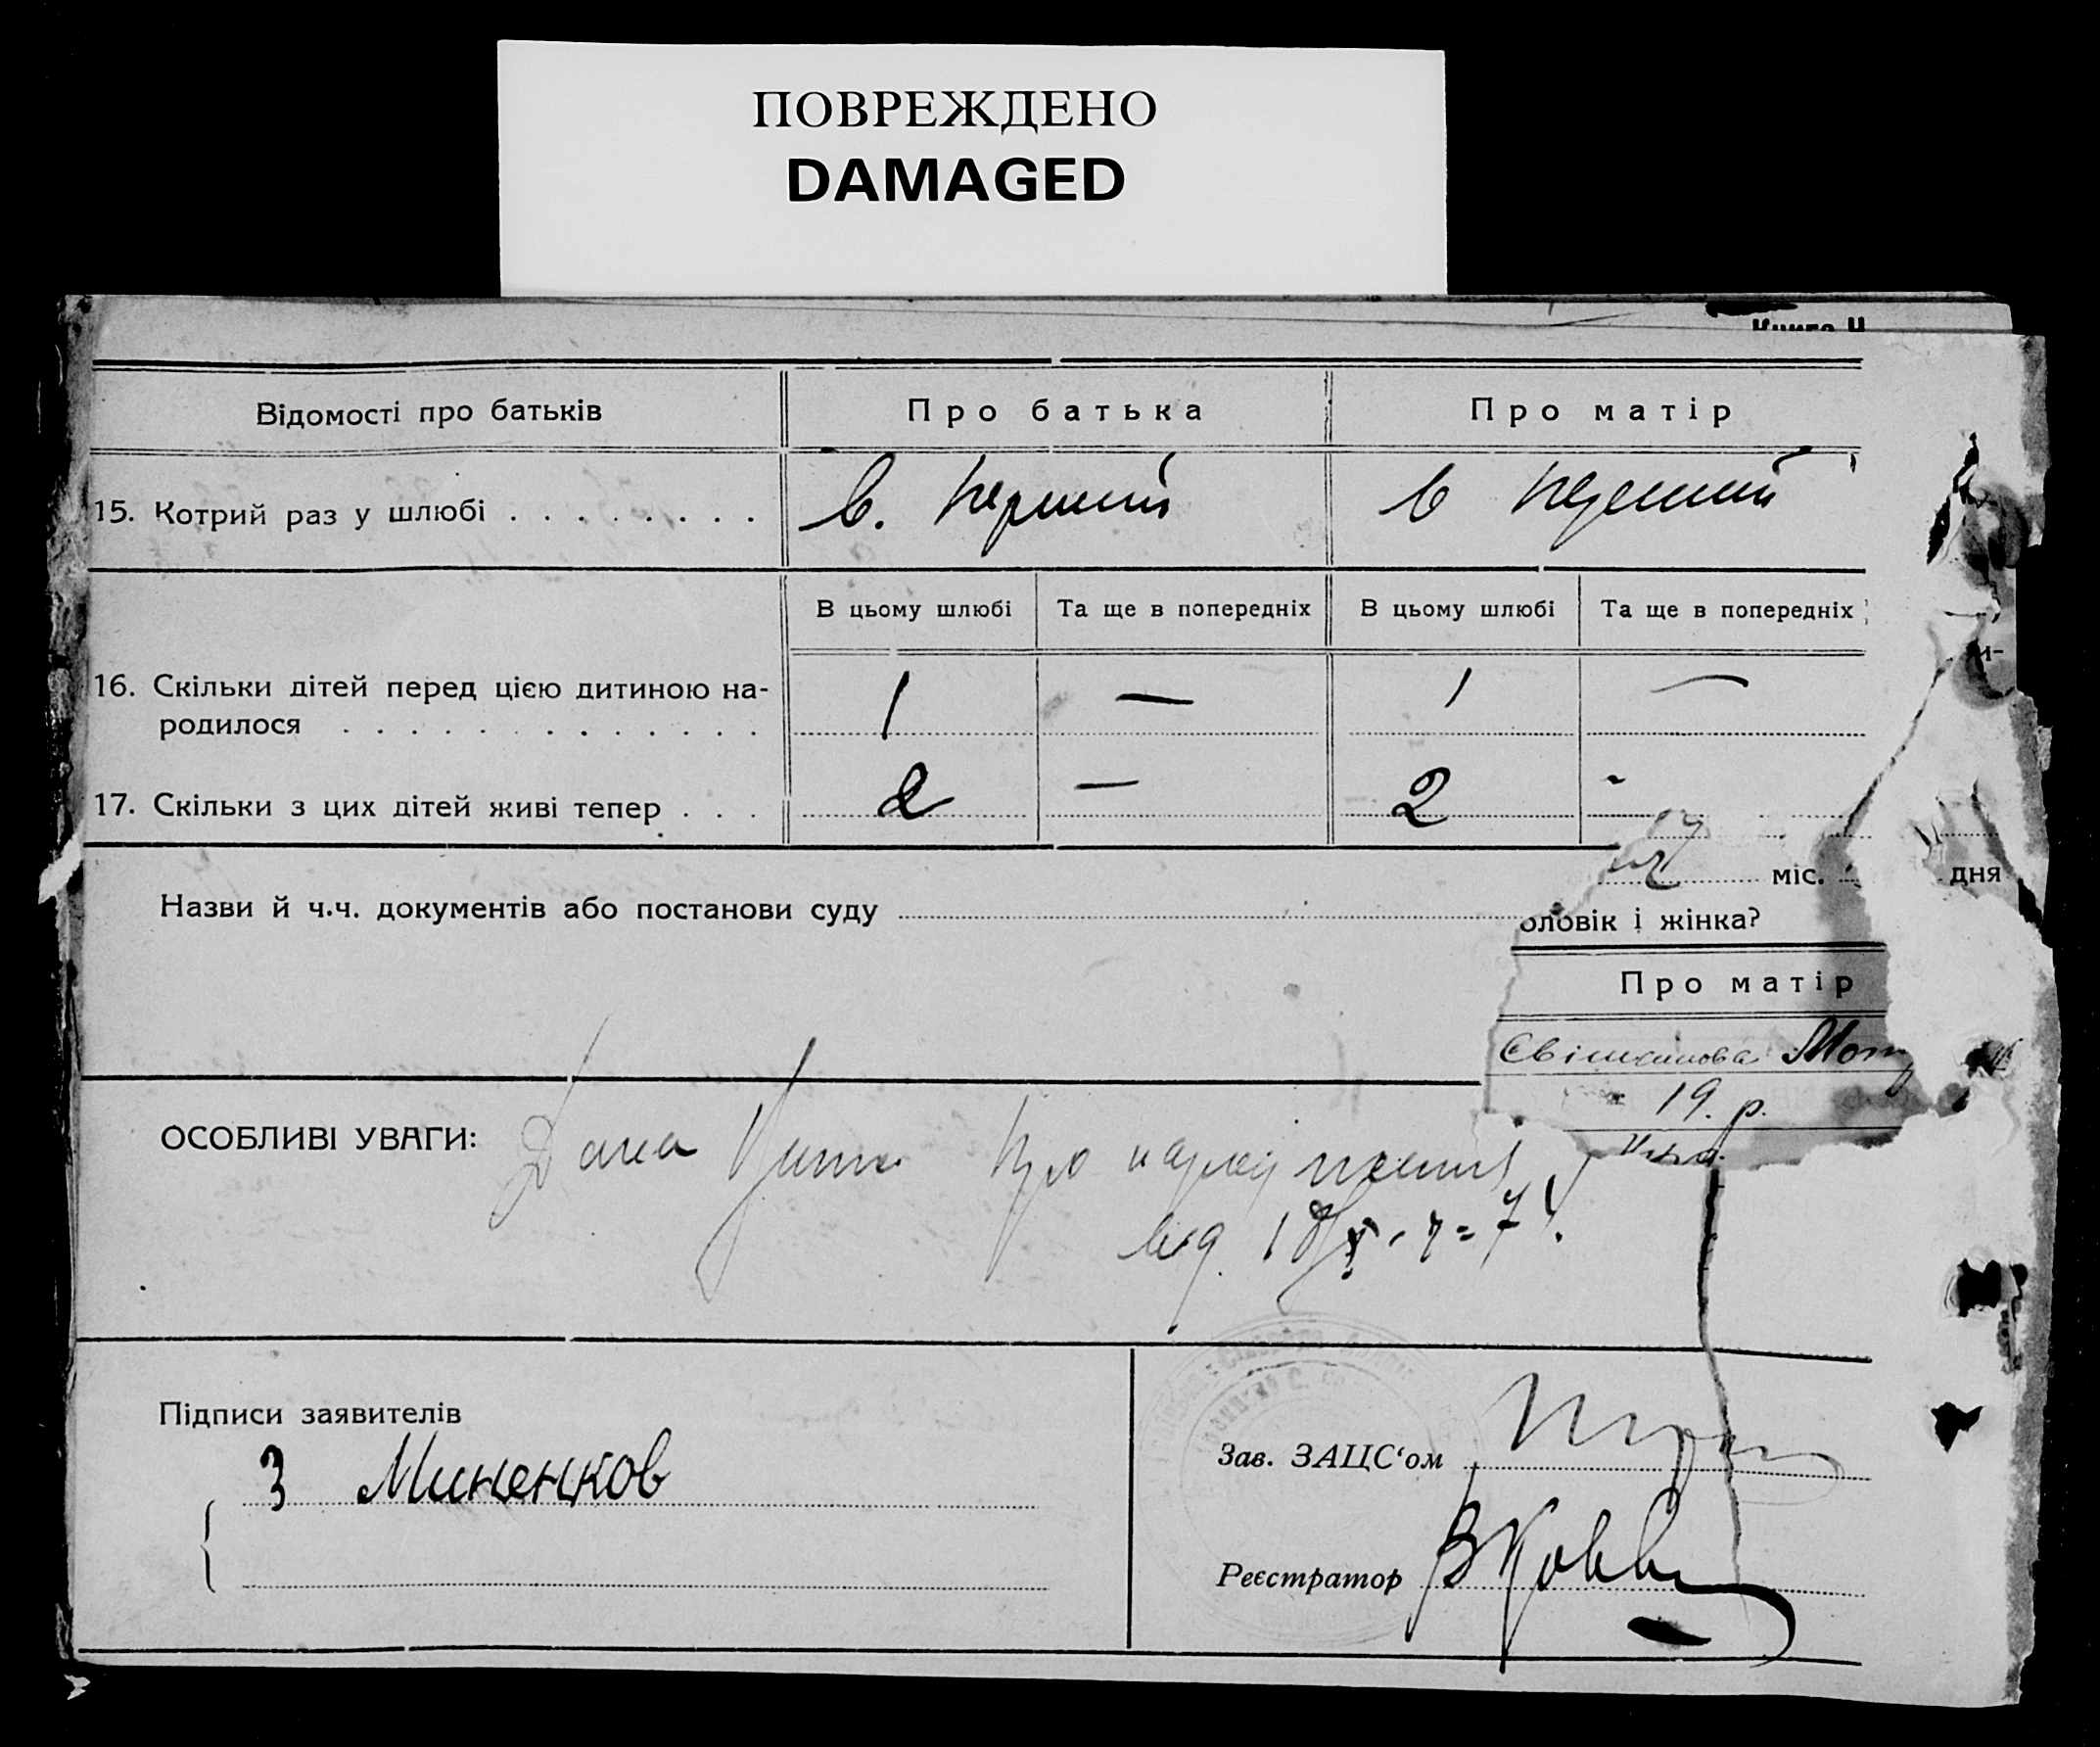 ПОВРЕЖДЕНО
DAMAGED
Книга Ч
Відомості про батьків
Про батька
Про матір
15. Котрий раз у шлюбі
в. перший
в перший
В цьому шлюбі
Та ще в попередніх
В цьому шлюбі
Та ще в попередніх
16. Скільки дітей перед цією дитиною на-
родилося
1 — 1 —
17. Скільки з цих дітей живі тепер
2 — 2 -
міс. дня
Назви й ч.ч. документів або постанови суду
оловік і жінка?
Про матір
19. р.
ОСОБЛИВІ УВАГИ:
Дана
про
від
Підписи заявителів
З Миненков
Зав. ЗАЦС‘ом
Реєстратор